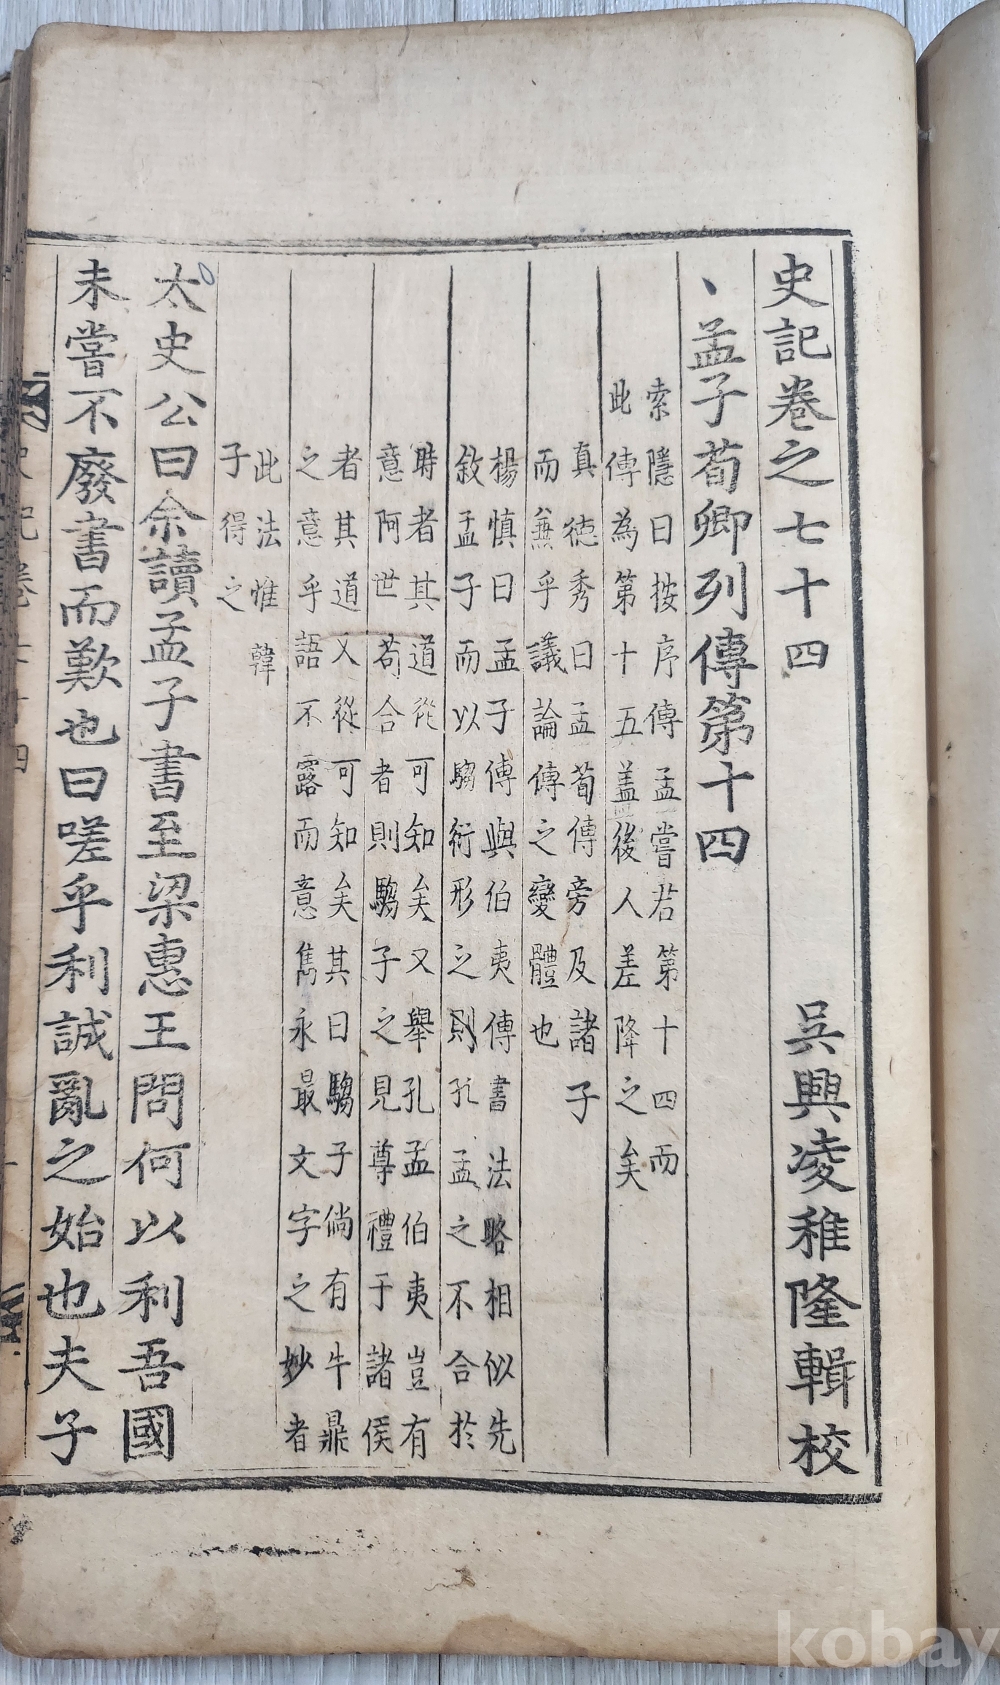 史記卷之七十四
吳興凌稚隆輯校
、孟子荀卿列傳第十四
索隱曰按序傳孟嘗君第十四而
此傳為第十五盖後人差降之矣
真德秀曰孟荀傳旁及諸子
而兼乎議論傳之變體也
楊慎曰孟子傳與伯夷傳書法略相似先
敘孟子而以騶衍形之則孔孟之不合於
時者其道從可知矣又舉孔孟伯夷豈有
意阿世苟合者則騶子之見尊禮于諸侯
者其道又從可知矣其曰騶子倘有牛鼎
之意乎語不露而意雋永最文字之妙者
此法惟韓
子得之
太史公曰余讀孟子書至梁惠王問何以利吾國
未嘗不廢書而歎也曰嗟乎利誠亂之始也夫子
史記卷七十四
kobay